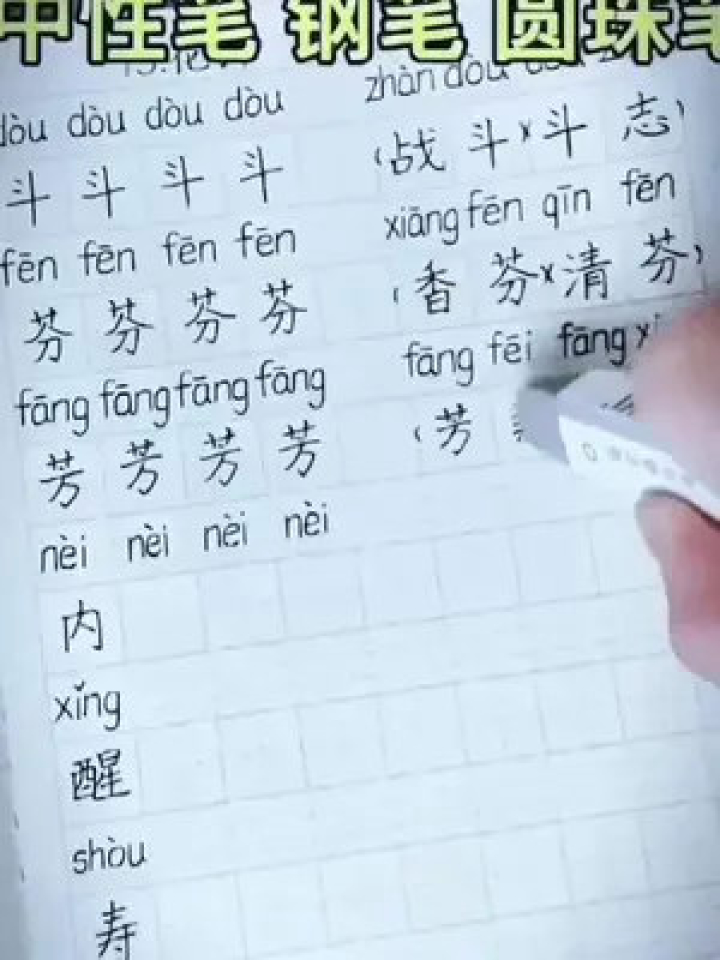 中性笔 钢笔 圆珠笔
dòu dòu dòu dòu zhàn dòu
斗 斗 斗 斗 (战 斗)(斗 志)
fēn fēn fēn fēn xiāng fēn qīn fēn
芬 芬 芬 芬 (香 芬)(清 芬)
fāng fāng fāng fāng fāng fēi fāng
芳 芳 芳 芳 (芳
nèi nèi nèi nèi
内
xǐng
醒
shòu
寿